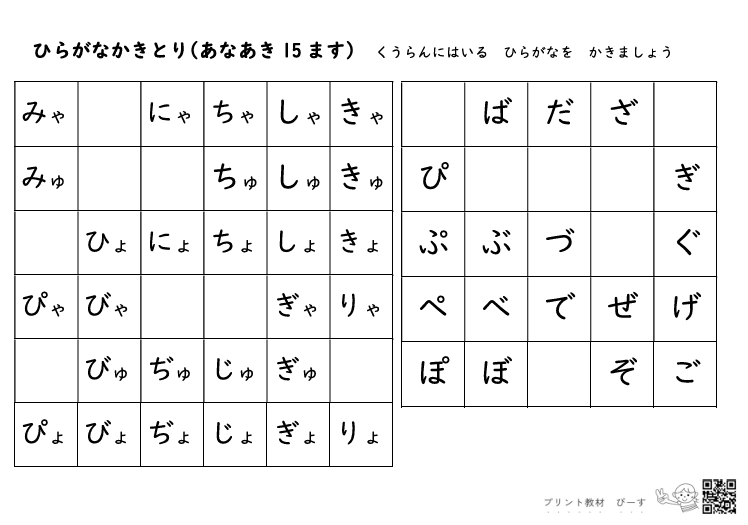 ひらがなかきとり(あなあき 15 ます) くうらんにはいる ひらがなを かきましょう
みゃ にゃ ちゃ しゃ きゃ
みゅ ちゅ しゅ きゅ
ひょ にょ ちょ しょ きょ
ぴゃ びゃ ぎゃ りゃ
びゅ ぢゅ じゅ ぎゅ
ぴょ びょ ぢょ じょ ぎょ りょ
ば だ ざ
ぴ ぎ
ぷ ぶ づ ぐ
ぺ べ で ぜ げ
ぽ ぼ ぞ ご
プリント教材 ぴーす